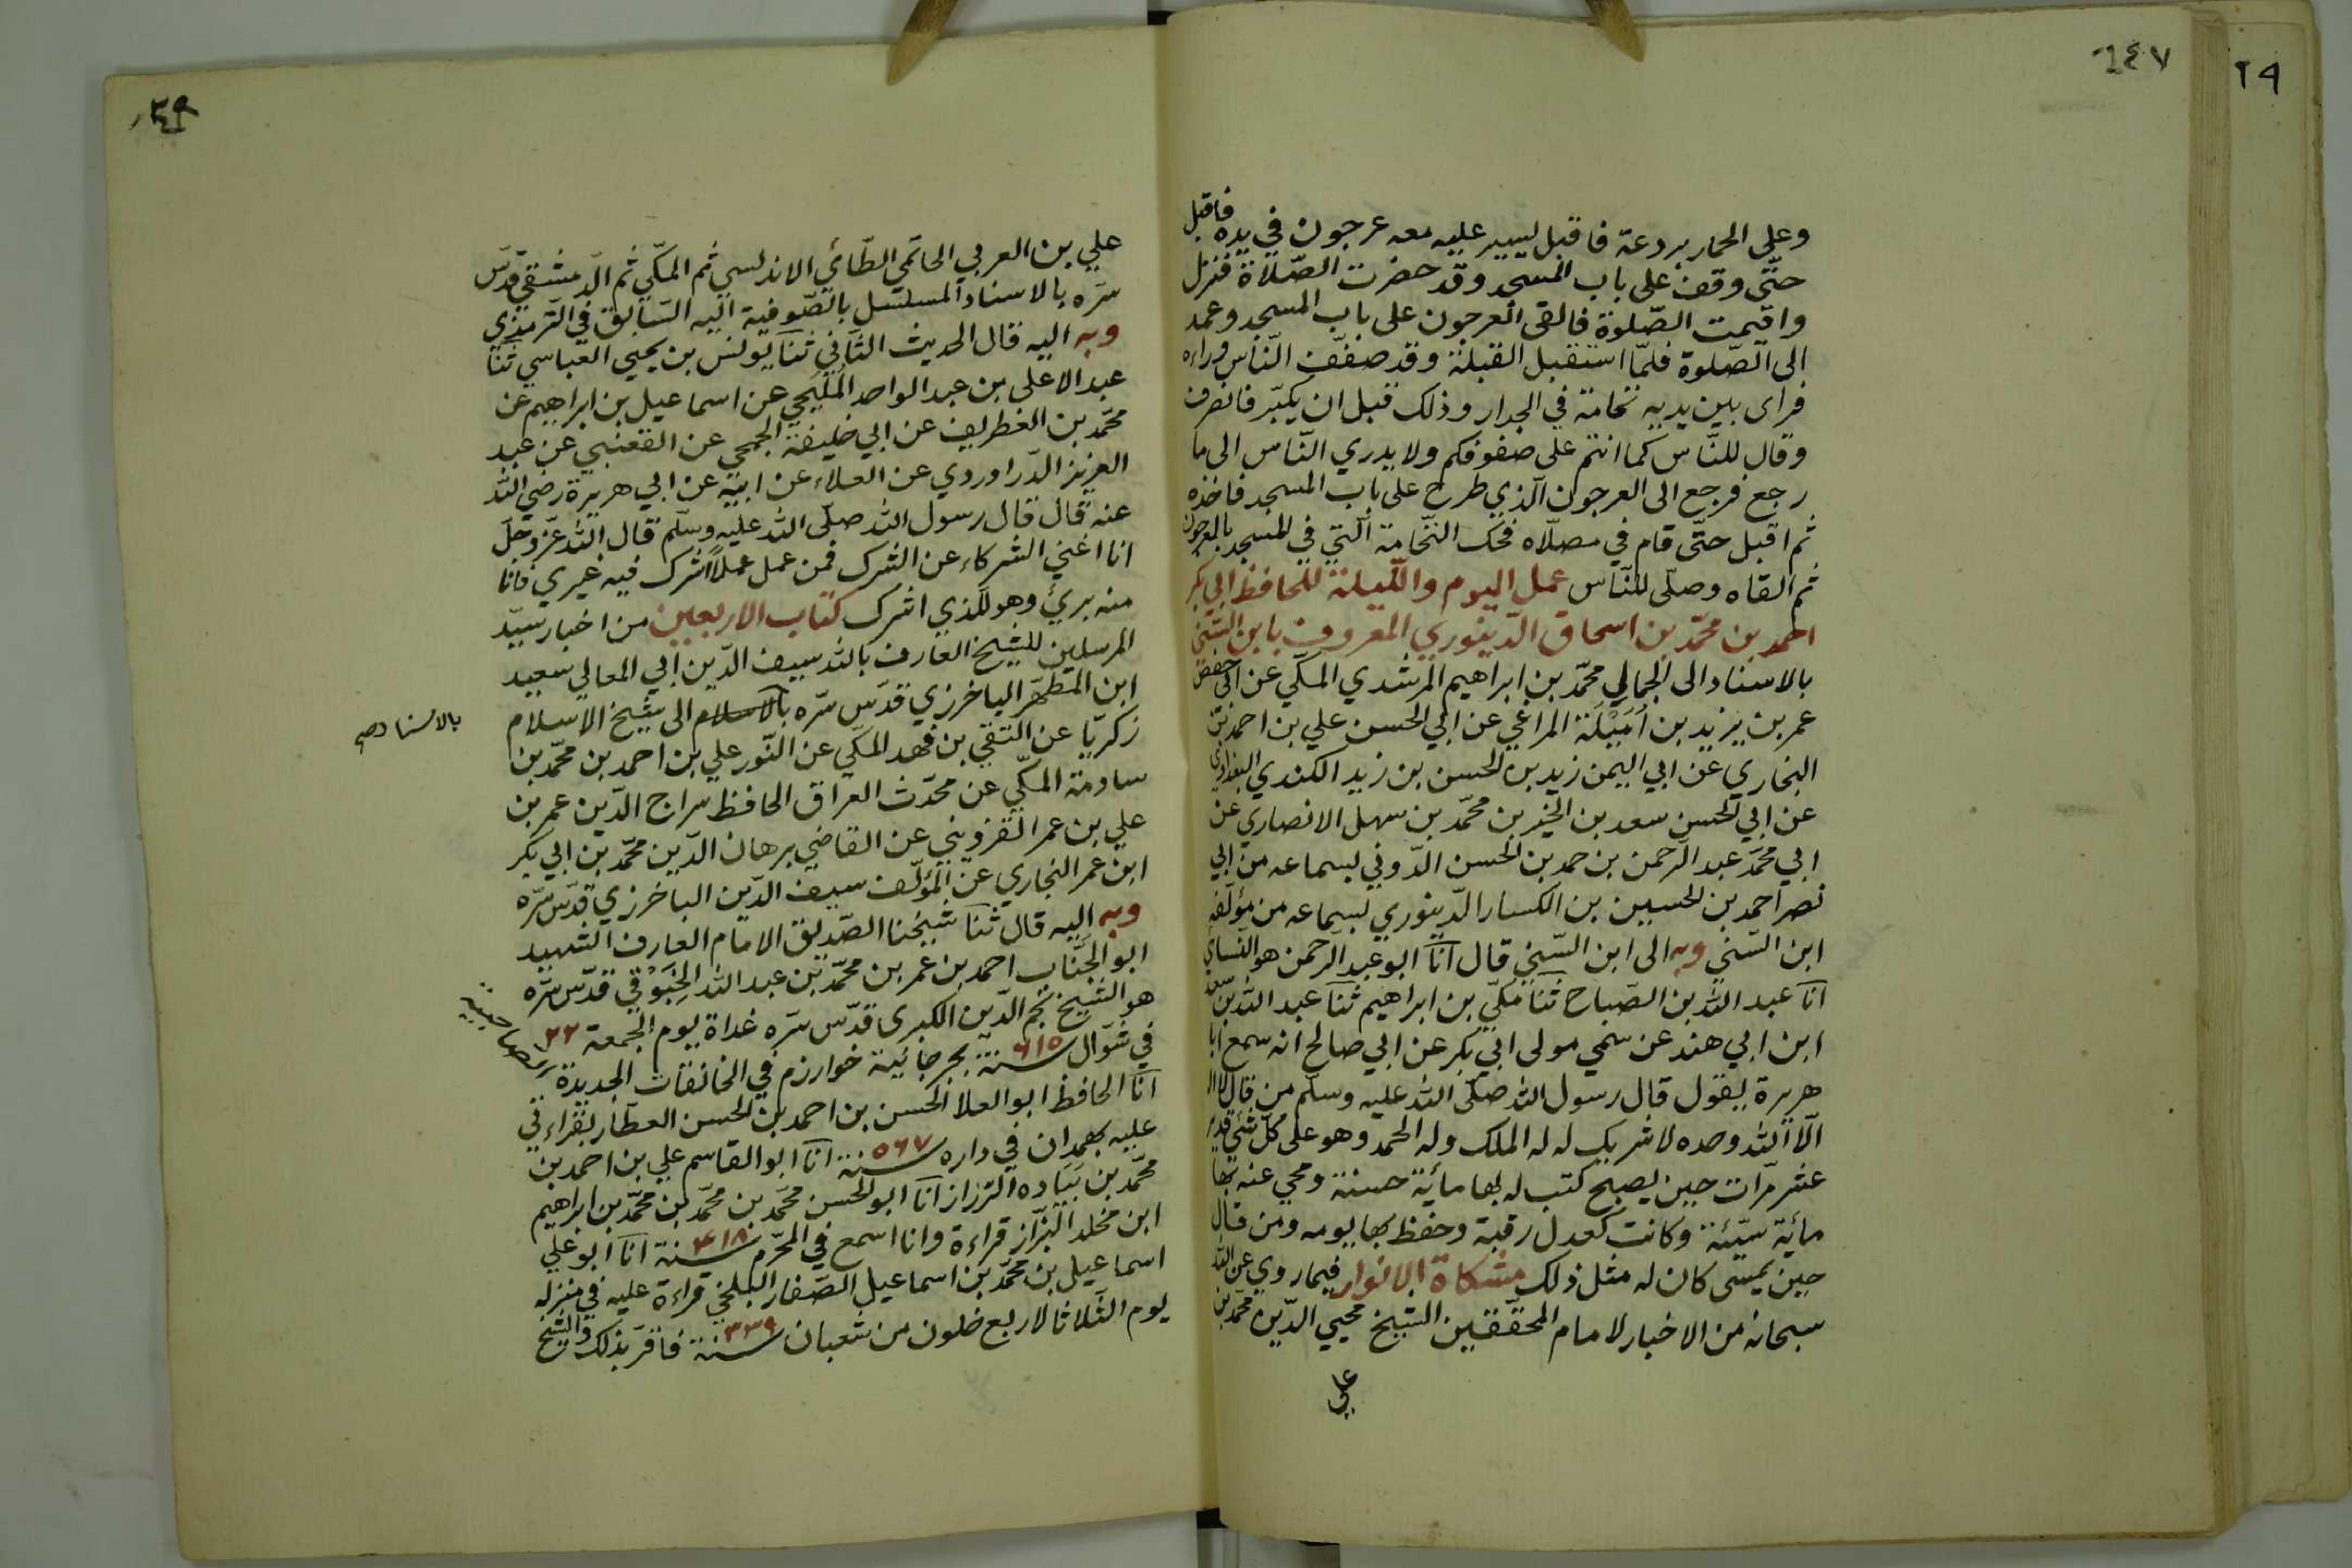 ١٤٧
٢٩
وعلى الحمار بردعة فاقبل ليسير عليه معه عرجون في يده فاقبل
حتّى وقف على باب المسجد وقد حضرت الصّلاة فنزل
واقيمت الصّلوة فالقى العرجون على باب المسجد وعمد
الى الصّلوة فلمّا استقبل القبلة وقد صفّف النّاس وراءه
فراى بين يديه نخامة في الجدار وذلك قبل ان يكبّر فانصرف
وقال للنّاس كما انتم على صفوفكم ولا يدري النّاس الى ما
رجع فرجع الى العرجون الّذي طرح على باب المسجد فاخذه
ثم اقبل حتّى قام في مصلّاه فحك النّخامة الّتي في المسجد بالعرجون
ثم القاه وصلّى للنّاس عمل اليوم واللّيلة للحافظ ابي بكر
احمد بن محمّد بن اسحاق الدّينوري المعروف بابن السّنّي
بالاسناد الى الجمالي محمّد بن ابراهيم المرشدي المكّي عن ابي حفص
عمر بن يزيد بن اُمَيْلَة المراغي عن ابي الحسن علي بن احمد بن
البخاري عن ابي اليمن زيد بن الحسن بن زيد الكندي البغدادي
عن ابي الحسن سعد بن الخير بن محمّد بن سهل الانصاري عن
ابي محمّد عبد الرّحمن بن حمد بن الحسن الدّوني بسماعه من ابي
نصر احمد بن الحسين بن الكسار الدّينوري بسماعه من مؤلّفه
ابن السّني وبه الى ابن السّني قال انا ابو عبد الرّحمن هو النّسايي
انا عبد الله بن الصّباح ثنا مكّي بن ابراهيم ثنا عبد الله بن سعد
ابن ابي هند عن سمي مولى ابي بكر عن ابي صالح انه سمع ابا
هريرة يقول قال رسول الله صلّى الله عليه وسلّم من قال لا اله
الّا الله وحده لا شريك له له الملك وله الحمد وهو على كلّ شئ قدير
عشر مرّات حين يصبح كتب له بها مأية حسنة ومحي عنه بها
مأية سيّئة وكانت كعدل رقبة وحفظ بها يومه ومن قال
حين يمسى كان له مثل ذلك مشكاة الانوار فيما روي عن الله
سبحانه من الاخبار لامام المحقّقين الشيخ محيي الدّين محمّد بن
علي
علي بن العربي الحاتمي الطّائي الاندلسي ثم المكّي ثم الدّمشقي قدّس
سرّه بالاسناد المسلسل بالصّوفية اليه السّابق في التّرمذي
وبه اليه قال الحديث الثّاني ثنا يونس بن يحيي العباسي ثنا
عبد الاعلى بن عبد الواحد المُلَيحي عن اسماعيل بن ابراهيم عن
محمّد بن الغطريف عن ابي خليفة الجمحي عن القعنبي عن عبد
العزيز الدّراوردي عن العلاء عن ابيه عن ابي هريرة رضي الله
عنه قال قال رسول الله صلّى الله عليه وسلّم قال الله عزّ وجلّ
انا اغني الشركاء عن الشرك فمن عمل عملاً اشرك فيه غيري فانا
منه بريئ وهو للّذي اشرك كتاب الاربعين من اخبار سيّد
المرسلين للشيخ العارف بالله سيف الدّين ابي المعالي سعيد
ابن المطهّر الباخرزي قدّس سرّه بالاسلام الى شيخ الاسلام
بالاسناد صح
زكريّا عن التقي بن فهد المكّي عن النّور علي بن احمد بن محمّد بن
سلامة المكّي عن محدّث العراق الحافظ سراج الدّين عمر بن
علي بن عمر القزويني عن القاضي برهان الدّين محمّد بن ابي بكر
ابن عمر النجاري عن المؤلّف سيف الدّين الباخرزي قدّس سرّه
وبه اليه قال ثنا شيخنا الصّديق الامام العارف الشهيد
ابو الجَنّاب احمد بن عمر بن محمّد بن عبد الله الخِيَوْقي قدّس سرّه
هو الشيخ نجم الدّين الكبرى قدّس سرّه غداة يوم الجمعة ٢٢
في شوّال سنة ٦١٥ بجرجانية خوارزم في الخانقات الجديدة
انا الحافظ ابو العلا الحسن بن احمد بن الحسن العطّار بقراءتي
عليه بهمدان في داره سنة ٥٦٧ انا ابو القاسم علي بن احمد بن
محمّد بن بَيَاده الرّزاز انا ابو الحسن محمّد بن محمّد بن محمّد بن ابراهيم
ابن مخلد البزّاز قراءة وانا اسمع في المحرّم سنة ٤١٨ انا ابو علي
اسماعيل بن محمّد بن اسماعيل الصّفار البلخي قراءة عليه في منزله
يوم الثّلاثا لاربع خلون من شعبان سنة ٣٣٩ فاقرّ بذلك والشيخ